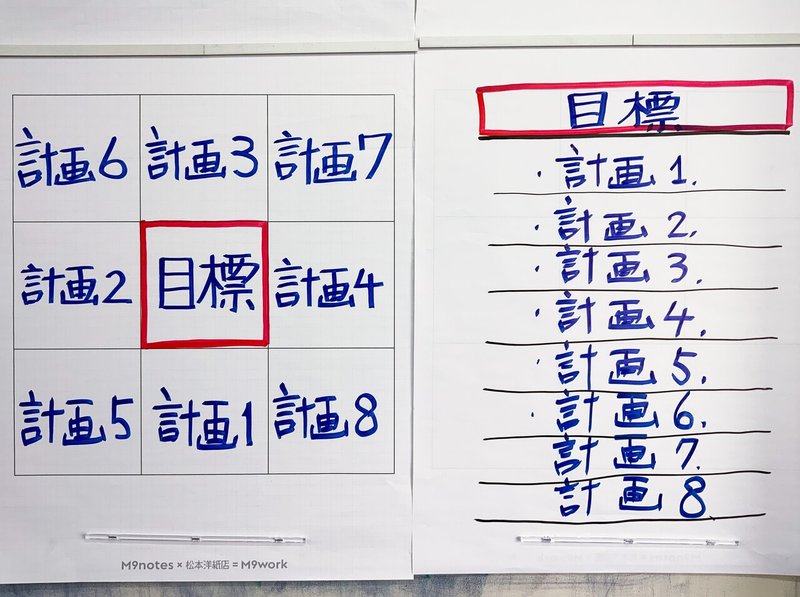 計画6 計画3 計画7
計画2 目標 計画4
計画5 計画1 計画8
M9notes × 松本洋紙店 = M9work
目標
・計画 1.
・計画 2.
・計画 3.
・計画 4.
・計画 5.
・計画 6.
計画 7.
計画 8
M9notes × 松本洋紙店 = M9work